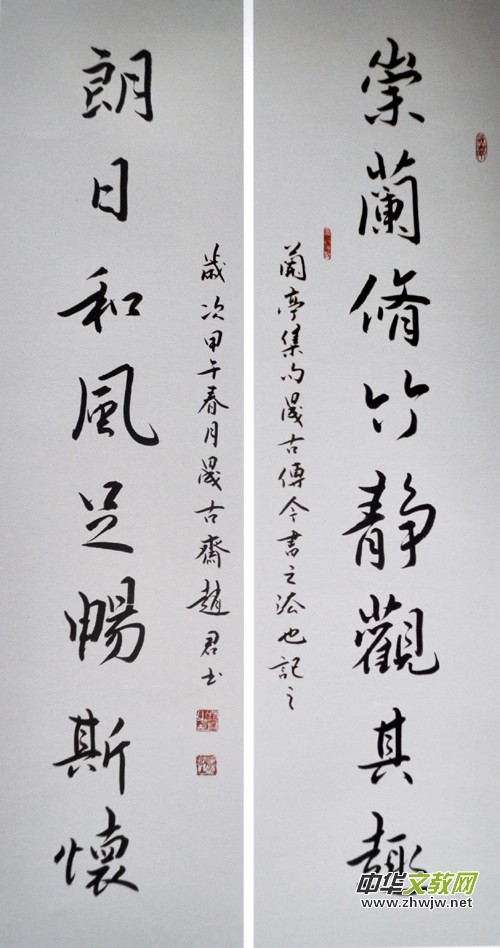 崇蘭脩竹静觀其趣
蘭亭集句晟古傳今書之法也記之
朗日和風足暢斯懷
歲次甲午春月晟古齋趙君书
中华文教网
www.zhwjw.net